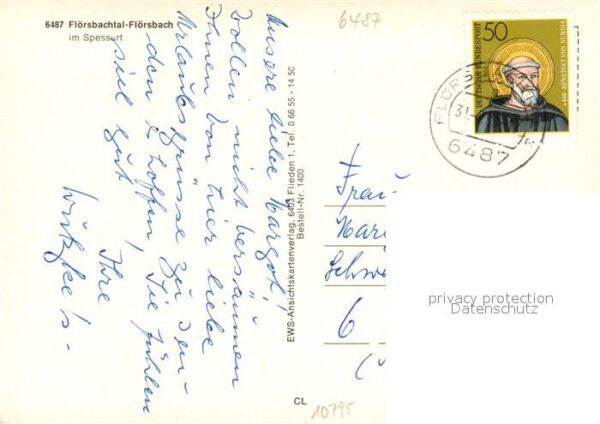 6487 Flörsbachtal-Flörsbach
im Spessart
6487
Unsere liebe Margot!
Wollen nicht versäumen
Ihnen von hier liebe
Urlaubsgrüsse zu sen-
den & hoffen, Sie fühlen
sich gut!
Ihre
EWS-Ansichtskartenverlag, 6403 Flieden 1, Tel. 0 66 55 - 14 50
Bestell-Nr. 1400
CL
10795
50
DEUTSCHE BUNDESPOST
BENEDIKT VON NURSIA
FLÖRS
31
6487
Frau
Schw
6
privacy protection
Datenschutz